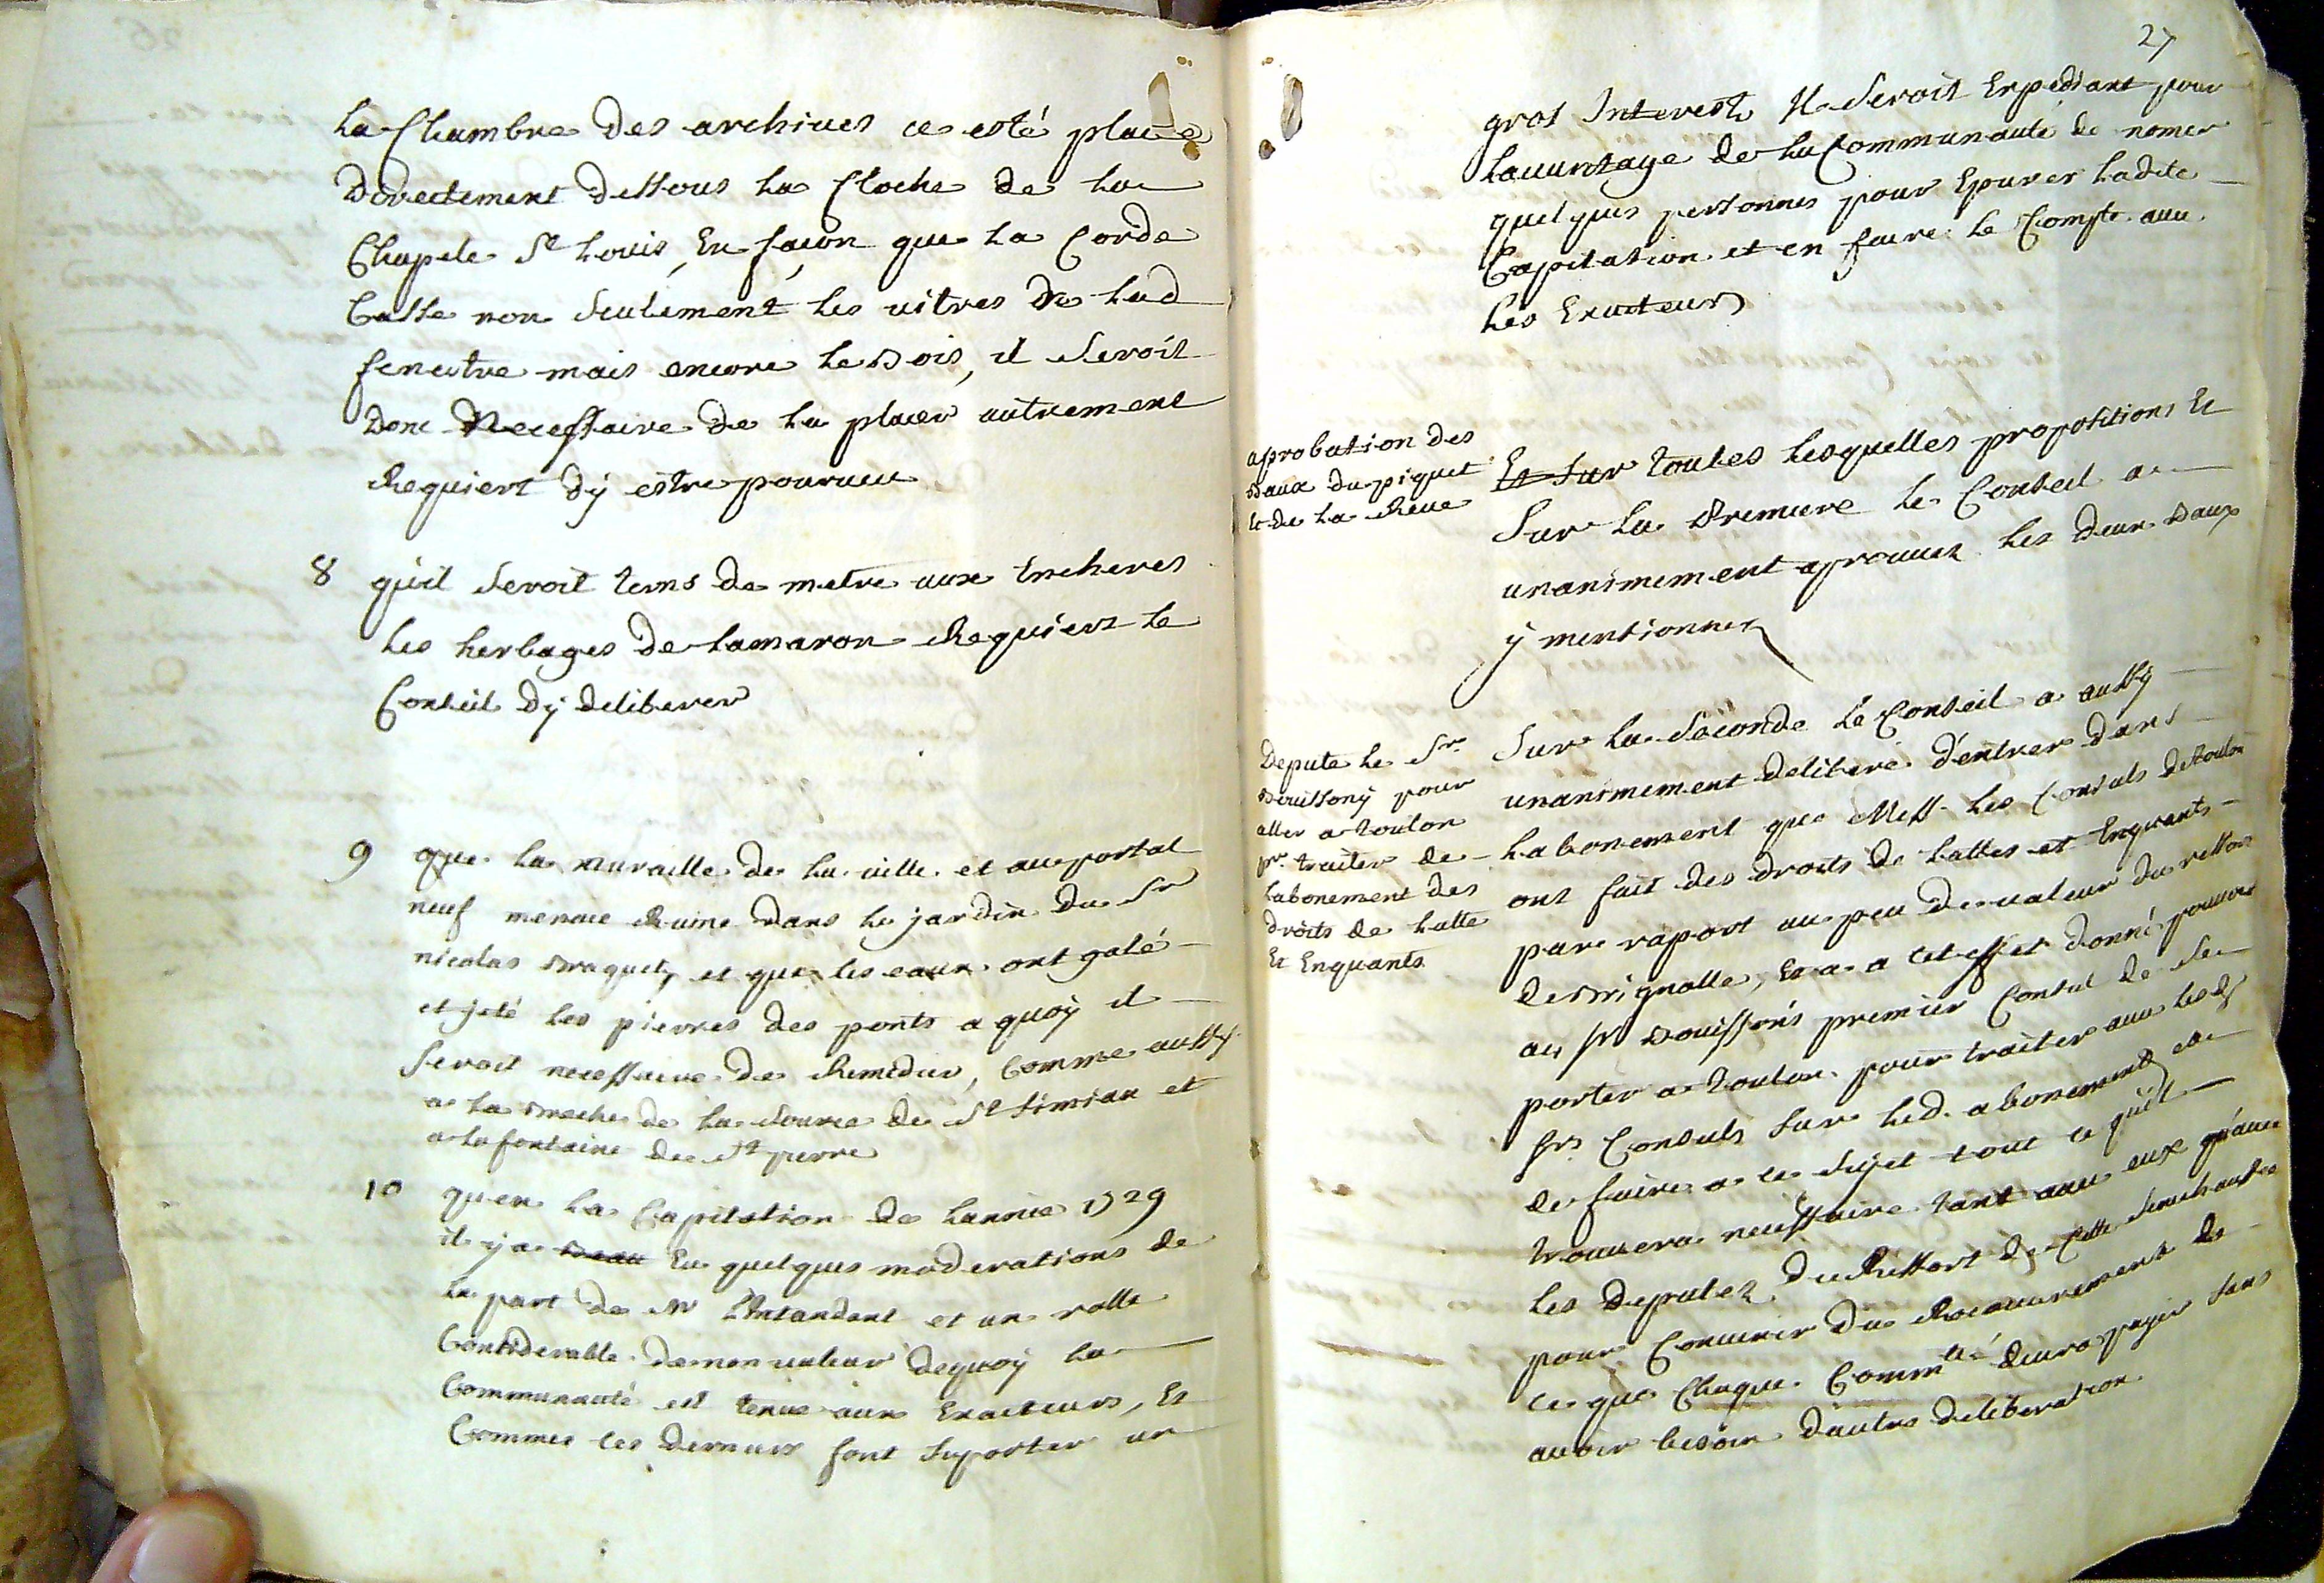 la Chambre des archives a esté placé
directement dessous la Cloche de la
Chapele St Louis, En façon que la Corde
Casse non seulement les vitres de lad
fenestre mais encore le bois, il seroit
donc Necessaire de la placer autrement
Requiert dÿ estre pourveu
8 quil seroit tems de metre aux Encheres
les herbages de lamaron Requiert le
Conseil dÿ deliberer
9 que la muraille de la ville et au portal
neuf menace Ruine dans le jardin du Sr
nicolas et que les eaux ont gaté
et jeté les pierres des ponts a quoÿ il
seroit necessaire de Remedier, Comme aussÿ
a la breche de la source de St Simian et
a la fontaine de St pierre
10 quen la Capitation de lannée 1729
il ÿ a Eu quelques moderations de
la part de Mr LIntandant et un rolle
Considerable de non valeur dequoÿ la
Communauté est tenue aux Exacteurs, Et
Comme ces derniers font suporter un
27
gros Interest Il seroit Expediant pour
lavantage de la Communauté de nomer
quelques personnes pour Epurer ladite
Capitation et en faire le Compte avec
les Exacteurs
aprobation des
baux du piquet
et de la Reve
Et Sur toutes lesquelles propositions Et
Sur la premiere le Conseil a
unanimement aprouvez les deux baux
ÿ mentionnez
Depute le Sr
pour
aller a toulon
pr traiter de
labonement des
droits de latte
Et Enquants
Sur la Seconde le Conseil a aussÿ
unanimement deliberé d'entrer dans
labonement que Mess les Consuls de toulon
ont fait des droits de lattes et Enquants
par raport au peu de valeur du ressort
de brignolle, Et a a cet effet donné pouvoir
au Sr premier Consul de se
porter a toulon pour traiter avec lesds
Srs Consuls sur led. abonement et
de faire a ce sujet tout ce quil
trouvera necessaire tant avec eux quavec
les deputez du Ressort de Cette Senechaussée
pour Convenir du Recouvrement de
ce que Chaque Commté devra payer sans
avoir besoin dautre deliberation